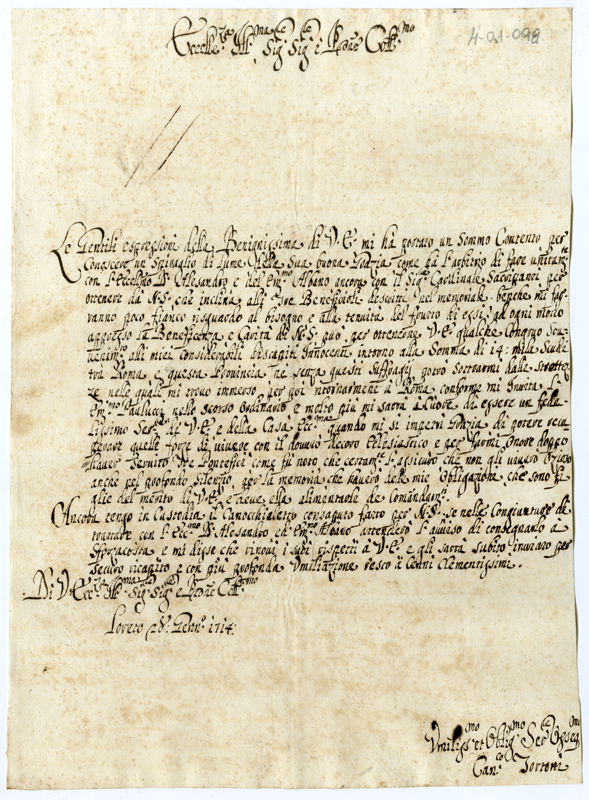 4-01-098
Eccell.mo Ill.mo Sig.re Sig.re e Padrone Coll.mo
Le Gentili espressioni della Benignissima di V. E. mi hà portato un Sommo Contento per
Conoscere un Spiraglio di lume della Sua buona Grazia come hà l'arbitrio di fare unitam.te
con l'Eccell.mo D. Alesandro e del Em.mo Albano ancora con il Sig.r Cardinale Sacripanti per
ottenere da N. S. che inclina alli Tre Beneficiali descritti nel memoriale, benche mi fac-
ciano poco fianco risguardo al bisogno e alla tenuità del frutto di essi, ad ogni modo
appresso la Beneficenza e Carità di N. S. può per ottenzione V. E. qualche Congruo Sou-
venim.to alli miei Considerabili discapiti Innocenti intorno alla Somma di 14: mila Scudi
trà Roma e questa Provincia ne senza questi Suffragij potrò Sottrarmi dalle Strettez-
ze nelle quali mi trovo immerso, per poi ritornarmene à Roma conforme mi Invita l'
Em.mo Paulucci nello scorso Ordinario e molto più mi sarà à Cuore di essere un fede-
lissimo Ser.re di V. E. e della Casa Ecc.ma quando mi si impetri Grazia di potere recu-
perare quelle forze di vivere con il dovuto decoro Eclesiastico e per farmi Onore doppo
d'haver Servito Tre Pontefici come fù noto che certam.te l'assicuro che non gli vivarò
anche nel profondo Silenzio per la memoria che haverò delle mie Obligazioni che sono fi-
glie del merito di V. E. e deve ella alimentarle de Comandam.ti
Ancora tengo in Custodia il Canochialetto consaputo fatto per N. S. Se nelle Congiunture di
trovarse con l'Ecc.mo D. Alesandro ed Em.mo Albano attenderò l'avviso di consegnarlo à
Sforzacosta e mi disse che rinovi i suoi rispetti à V. E. e gli sarà Subito inviato per
Securo ricapito e con più profonda Umiliazione resto à Cenni Clementissimi.
Di V. Ecc.za Ill.ma Sig.re Sig.re e Padrone Coll.mo
Loreto Genn.o 1714:
Umilis.mo et Oblig.mo Ser.re Osseq.mo
Can.co Tortoni